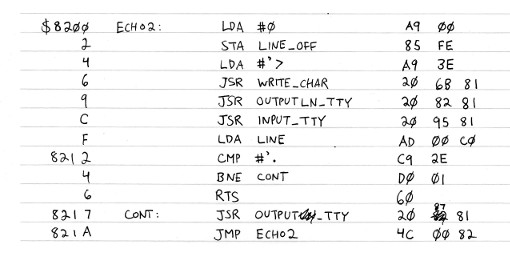 $8200 ECHO2: LDA #0 A9 00
2 STA LINE_OFF 85 FE
4 LDA #'> A9 3E
6 JSR WRITE_CHAR 20 6B 81
9 JSR OUTPUTLN_TTY 20 82 81
C JSR INPUT_TTY 20 95 81
F LDA LINE AD 00 C0
8212 CMP #'. C9 2E
4 BNE CONT D0 01
6 RTS 60
8217 CONT: JSR OUTPUT_TTY 20 87 81
821A JMP ECHO2 4C 00 82